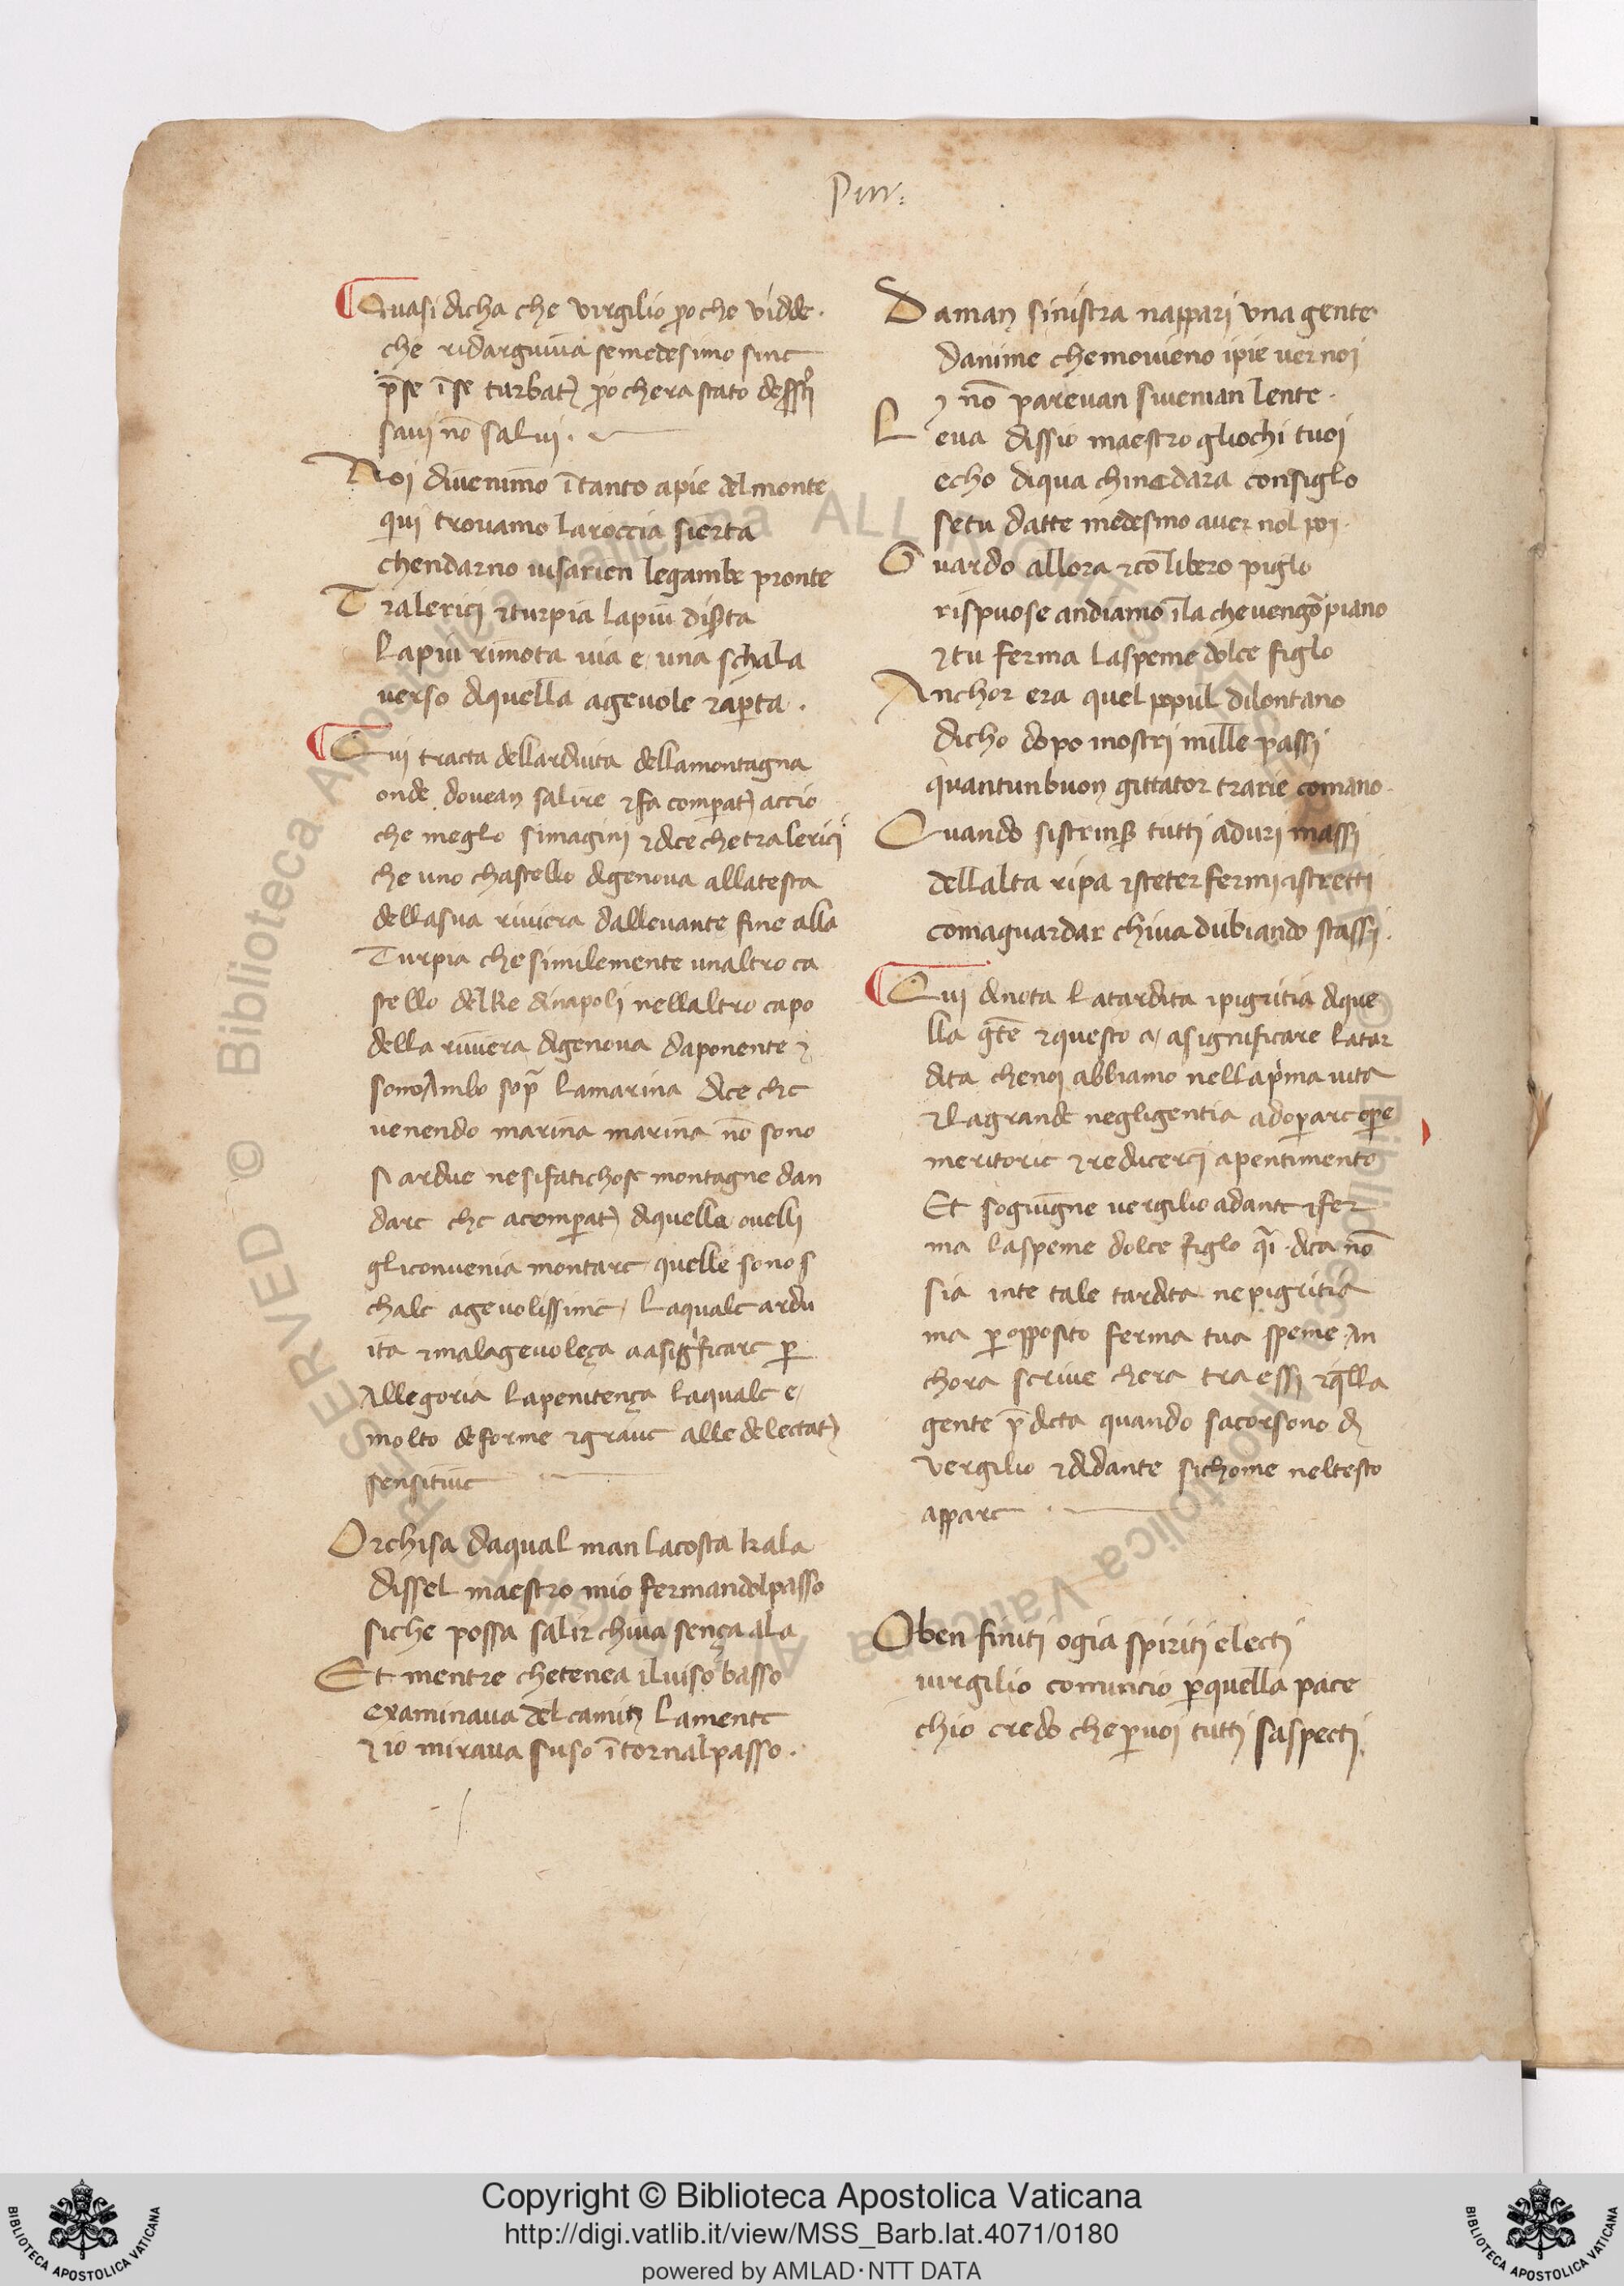 Pur:
Quasi dicha che virgilio po che vidde·
che ridarguiua semedesimo sinc
pse ĩse turbat po chera stato dessi
saui nõ salui·
Noi diuenimo ĩtanto apie del monte
qui trouamo laroccia sierta
chendarno uisarien legambe pronte
Tralerici ⁊turpia lapiu dista
Lapiu rimota uia e una schala
verso diquella ageuole ⁊apta·
Qui tracta dellarduita dellamontagna
onde douean salire ⁊fa compat accio
che meglo simagini ⁊dice chetralerici
che uno chastello digenoua allatesta
dellasua riuiera dalleuante fine alla
Turpia che similemente unaltro ca
stello delRe dinapoli nellaltro capo
della riuiera digenoua daponente ⁊
sono Ambo sop̃ lamarina dice che
uenendo marina marina nõ sono
si ardue nesifatichose montagne dan
dare che acompat diquella ouelli
gliconuenia montare quelle sono s
chale ageuolissime Laquale ardu
ita ⁊malageuoleça aasigificare p
Allegoria lapenitença laquale e
molto deforme ⁊graue alle delectat
sensitiue
Orchisa daqual man lacosta kala
dissel maestro mio fermandolpasso
siche possa salir chiua sença ala
Et mentre chetenea iluiso basso
examinaua del camin Lamente
⁊io miraua suso ĩtornalpasso·
Daman sinistra nappari vna gente
danime chemouieno ipie uernoi
⁊ nõ pareuan siuenian lente·
Leua dissio maestro gliochi tuoi
echo diqua chinedara consiglo
setu datte medesmo auer nol poi·
Guardo allora ⁊cõ libero piglo
rispuose andiamo ĩla cheuengõ piano
⁊tu ferma laspeme dolce figlo
Anchor era quel popul dilontano
dicho dopo inostri mille passi
quantunbuon gittator trarie comano·
Quando sistrinser tutti aduri massi
dellalta ripa ⁊steter fermi ⁊stretti
comaguardar chiua dubiando stassi·
Qui dinota Latardita ⁊pigritia dique
lla gẽte ⁊questo a asignificare latar
dita chenoi abbiamo nellapima uita
⁊Lagrande negligentia adoparc ope
meritorie ⁊reducerci apentimento
Et sogiugne uergilio adante ⁊fer
ma laspeme dolce figlo q̃i dica nõ
sia inte tale tardita ne pigritia
ma p opposito ferma tua speme An
chora scriue chera tra essi ⁊q̃lla
gente p̃dicta quando sacorsono di
vergilio ⁊didante sichome neltesto
appare·
Oben finiti ogia spiriti electi
uirgilio comincio pquella pace
chio credo che puoi tutti saspecti·
Copyright © Biblioteca Apostolica Vaticana
http://digi.vatlib.it/view/MSS_Barb.lat.4071/0180
powered by AMLAD·NTT DATA
BIBLIOTECA APOSTOLICA VATICANA
BIBLIOTECA APOSTOLICA VATICANA